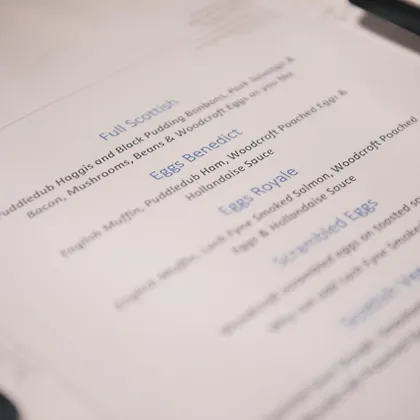 Full Scottish
Puddledub Haggis and Black Pudding Bonbons, Pork Sausage &
Bacon, Mushrooms, Beans & Woodcroft Eggs as you like
Eggs Benedict
English Muffin, Puddledub Ham, Woodcroft Poached Eggs &
Hollandaise Sauce
Eggs Royale
English Muffin, Loch Fyne Smoked Salmon, Woodcroft Poached
Eggs & Hollandaise Sauce
Scrambled Eggs
Woodcroft scrambled eggs on toasted
Why not add Loch Fyne Smoked
Scottish